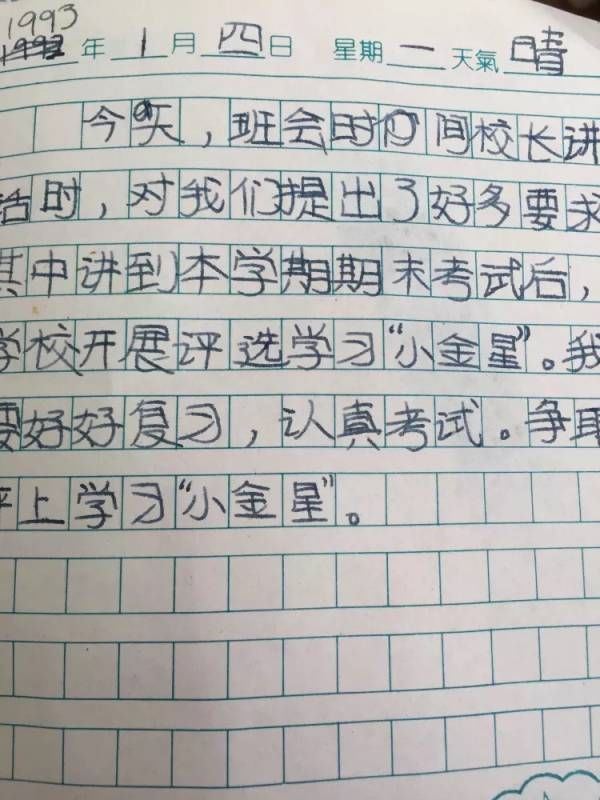 1993
年 1 月 四 日 星期 一 天氣 晴
今天，班会时间校长讲
话时，对我们提出了好多要求
其中讲到本学期期末考试后，
学校开展评选学习“小金星”。我
要好好复习，认真考试。争取
评上学习“小金星”。